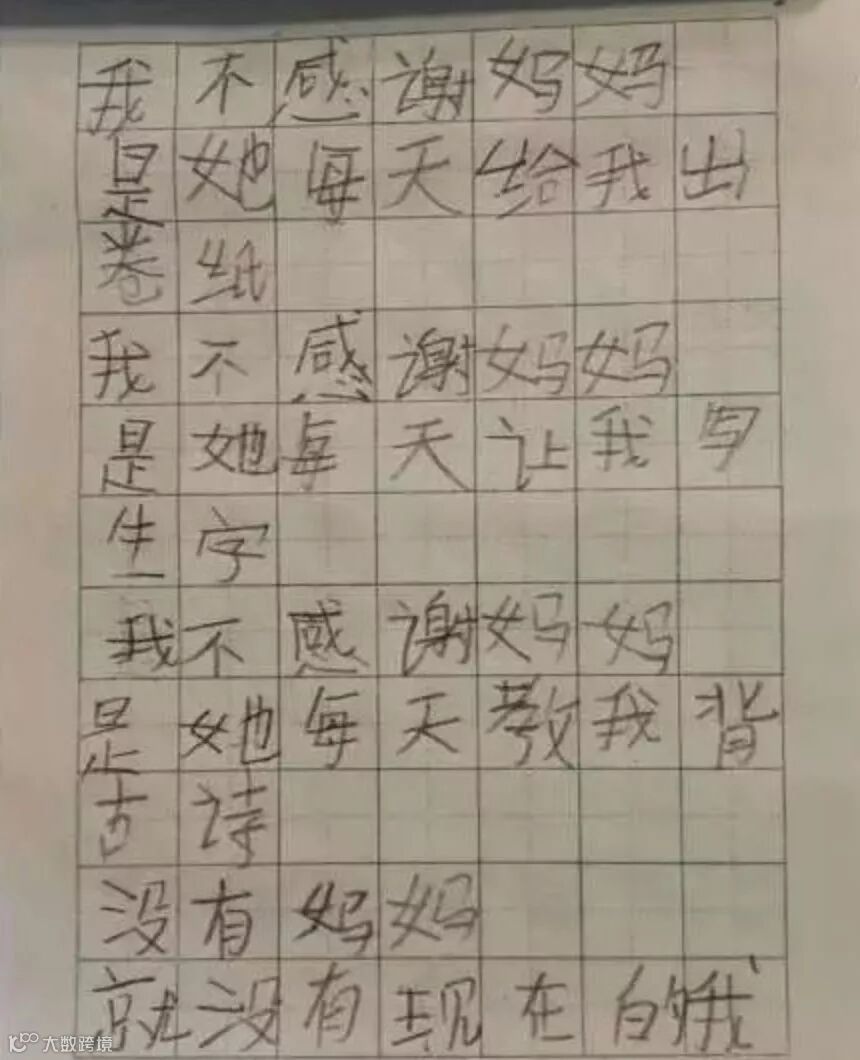 我不感谢妈妈
是她每天给我出
卷纸
我不感谢妈妈
是她每天让我写
生字
我不感谢妈妈
是她每天教我背
古诗
没有妈妈
就没有现在的我
大数跨境